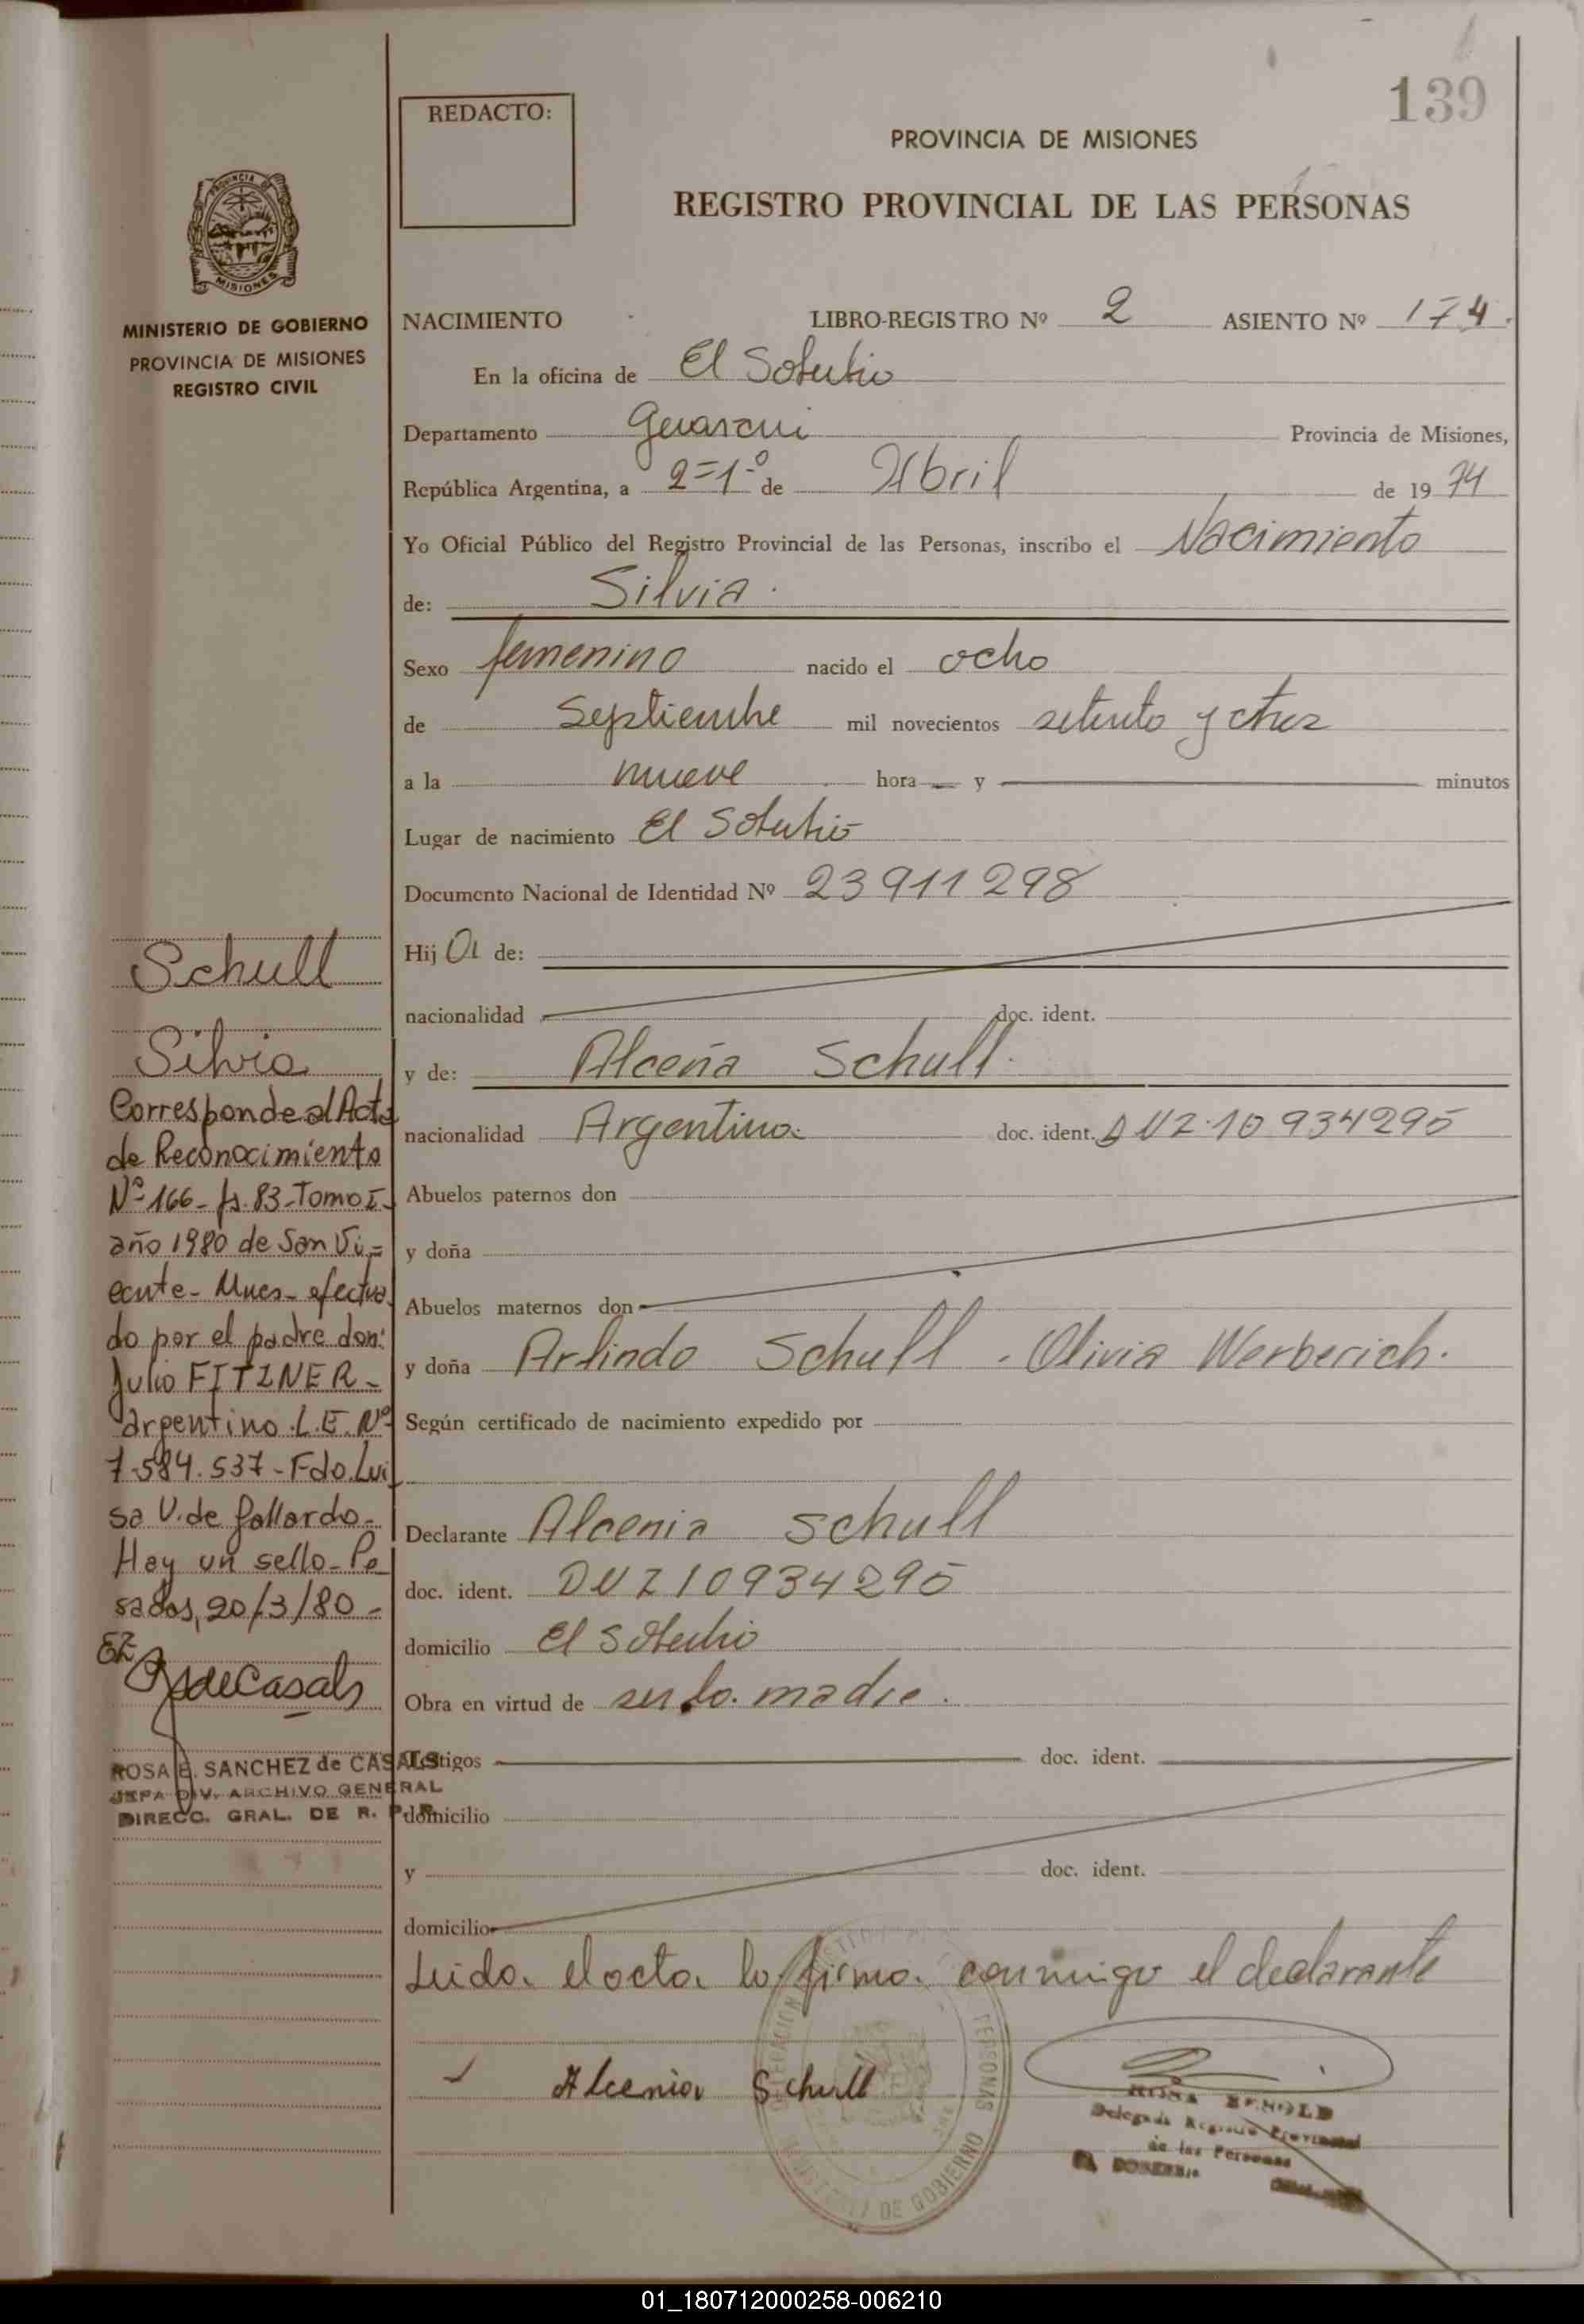 139
REDACTO:
PROVINCIA DE MISIONES
REGISTRO PROVINCIAL DE LAS PERSONAS
PROVINCIA DE
MISIONES
MINISTERIO DE GOBIERNO
PROVINCIA DE MISIONES
REGISTRO CIVIL
NACIMIENTO LIBRO-REGISTRO Nº 2 ASIENTO Nº 174.
En la oficina de El Soberbio
Departamento Guarani Provincia de Misiones,
República Argentina, a 2=1-º de Abril de 1974
Yo Oficial Público del Registro Provincial de las Personas, inscribo el Nacimiento
de: Silvia.
Sexo femenino nacido el ocho
de Septiembre mil novecientos setenta y tres
a la nueve hora — y — minutos
Lugar de nacimiento El Soberbio
Documento Nacional de Identidad Nº 23911298
Hija de:
nacionalidad doc. ident.
y de: Alcenia Schull.
nacionalidad Argentina. doc. ident. DUZ.10934295
Abuelos paternos don
y doña
Abuelos maternos don
y doña Arlindo Schull - Olivia Werberich.
Según certificado de nacimiento expedido por
Declarante Alcenia Schull
doc. ident. DUZ10934295
domicilio El Soberbio
Obra en virtud de ser la madre.
Testigos doc. ident.
domicilio
y doc. ident.
domicilio
Leida el acta la firma conmigo el declarante
Alcenia Schull
ROSA
Delegada Registro Provincial
de las Personas
EL SOBERBIO
PERSONAS
DE GOBIERNO
Schull
Silvia
Corresponde al Acta
de Reconocimiento
Nº 166- fs. 83-Tomo I-
año 1980 de San Vi=
cente- Mnes- efectua
do por el padre don:
Julio FITZNER-
argentino.L.E.Nº
7.584.537-Fdo.Lui
sa V.de Gallardo-
Hay un sello-Po
sadas, 20/3/80-
ROSA E. SANCHEZ de CASALS
JEFA DIV. ARCHIVO GENERAL
DIRECC. GRAL. DE R. P. P.
01_180712000258-006210